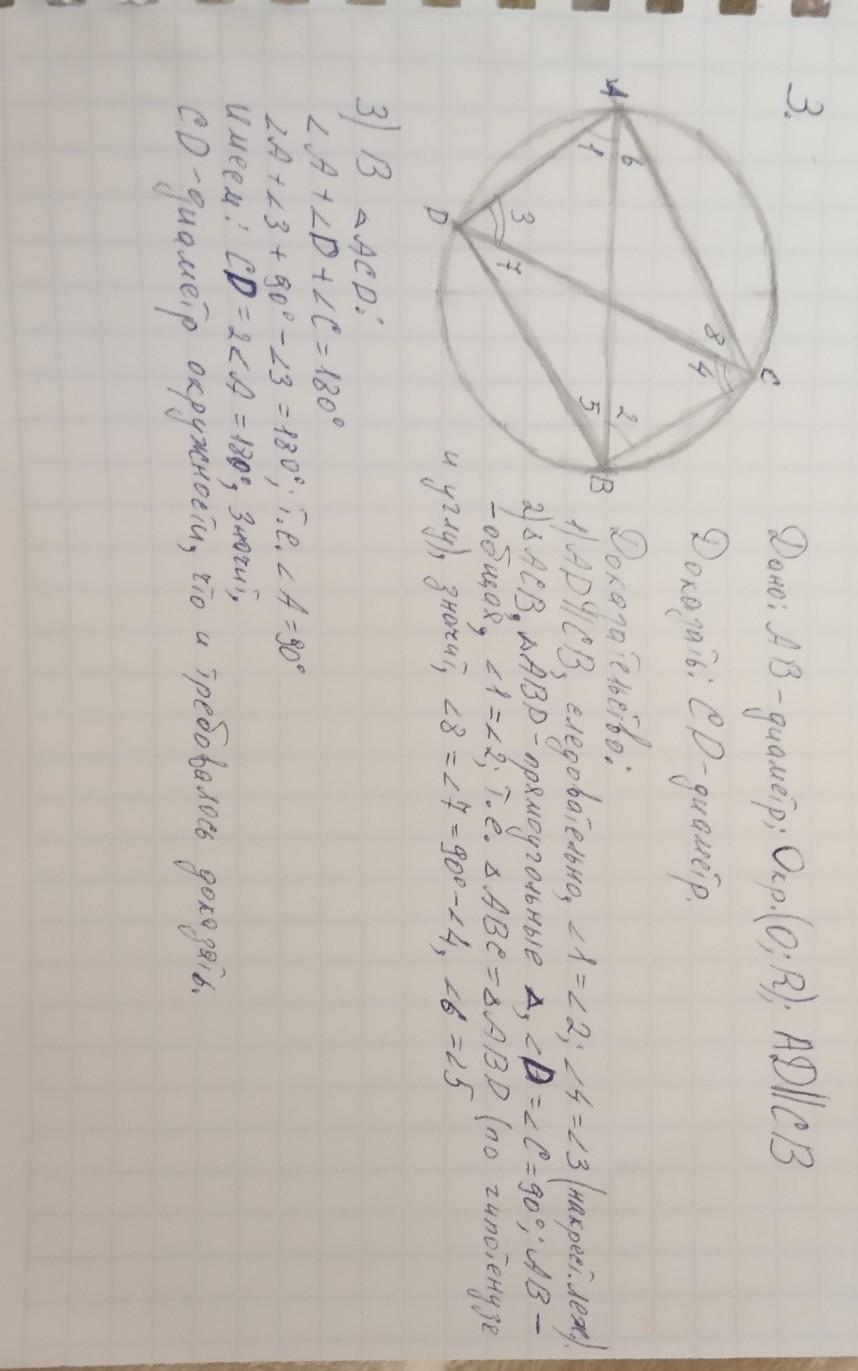 3.
Дано: AB-диаметр; Окр.(O;R); AD||CB
Доказать: CD-диаметр.
A
B
C
D
1
6
3
7
8
4
2
5
Доказательство:
1) AD||CB, следовательно, ∠1=∠2; ∠4=∠3 (накрест. леж.).
2) ΔACB, ΔABD-прямоугольные Δ, ∠D=∠C=90°; AB-
-общая, ∠1=∠2; т.е. ΔABC=ΔABD (по гипотенузе
и углу), значит, ∠8=∠7=90°-∠4, ∠6=∠5
3) В ΔACD:
∠A+∠D+∠C=180°
∠A+∠3+90°-∠3=180°; т.е. ∠A=90°
Имеем: CD=2∠A=180°, значит,
CD-диаметр окружности, что и требовалось доказать.